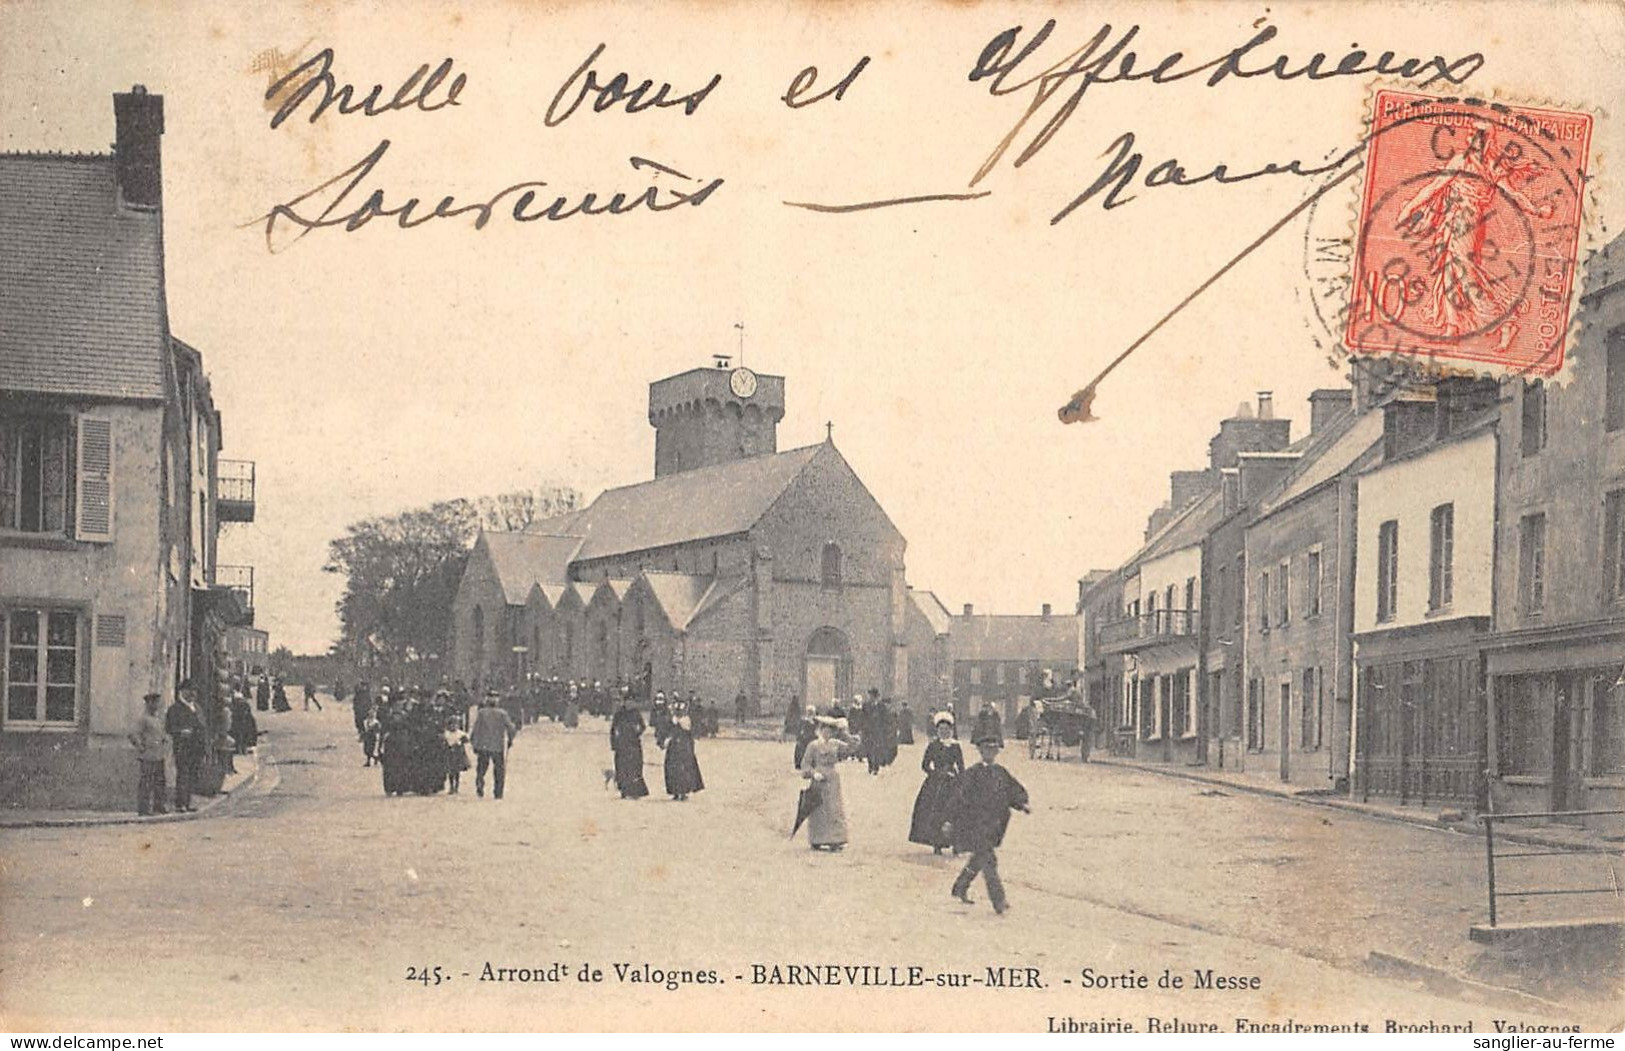 Mille bons et affectueux
Souvenirs —
RÉPUBLIQUE FRANÇAISE
10
POSTES
CARTERET
27
MARS
09
MANCHE
245. - Arrondt de Valognes. - BARNEVILLE-sur-MER. - Sortie de Messe
Librairie, Reliure, Encadrements, Brochard, Valognes
sanglier-au-ferme